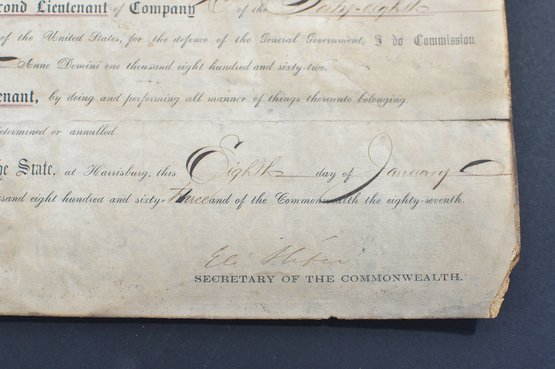 cond Lieutenant of Company of the Sixty-eighth
of the United States, for the defence of the General Government, I do Commission
Anno Domini one thousand eight hundred and sixty-two.
enant, by doing and performing all manner of things thereunto belonging
etermined or annulled.
he State, at Harrisburg, this Eighth day of January
usand eight hundred and sixty-three and of the Commonwealth the eighty-seventh.
Eli Slifer
SECRETARY OF THE COMMONWEALTH.